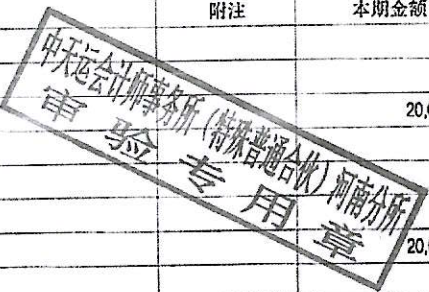 附注 本期金额
中天运会计师事务所（特殊普通合伙）河南分所
审验专用章
20,
20,